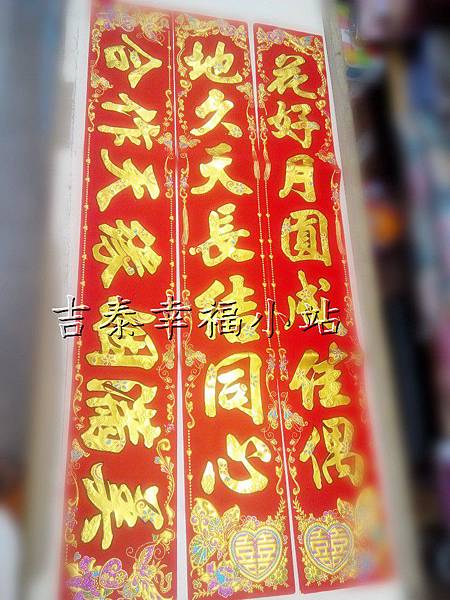 花好月圓成佳偶
地久天長結同心
合作天緣個滿美
囍
囍
吉泰幸福小站